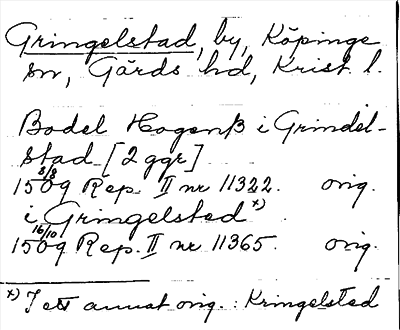 Gringelstad, by, Köpinge
sn, Gärds hd, Krist. l.
Bodel Hogenß i Grindel-
stad [2 ggr]
8/8
1509 Rep. II nr 11322. orig.
i Gringelsted x)
16/10
1509 Rep. II nr 11365. orig.
x) I ett annat orig.: Kringelsted